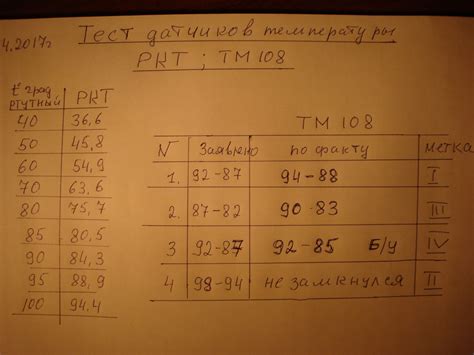 4.2017г
Тест датчиков температуры
РКТ ; ТМ108
t° град ртутный РКТ
40 36,6
50 45,8
60 54,9
70 63,6
80 75,7
85 80,5
90 84,3
95 88,9
100 94,4
ТМ 108
N Заявлено по факту метка
1. 92-87 94-88 I
2. 87-82 90-83 III
3 92-87 92-85 Б/у IV
4 98-94 не замкнулся II